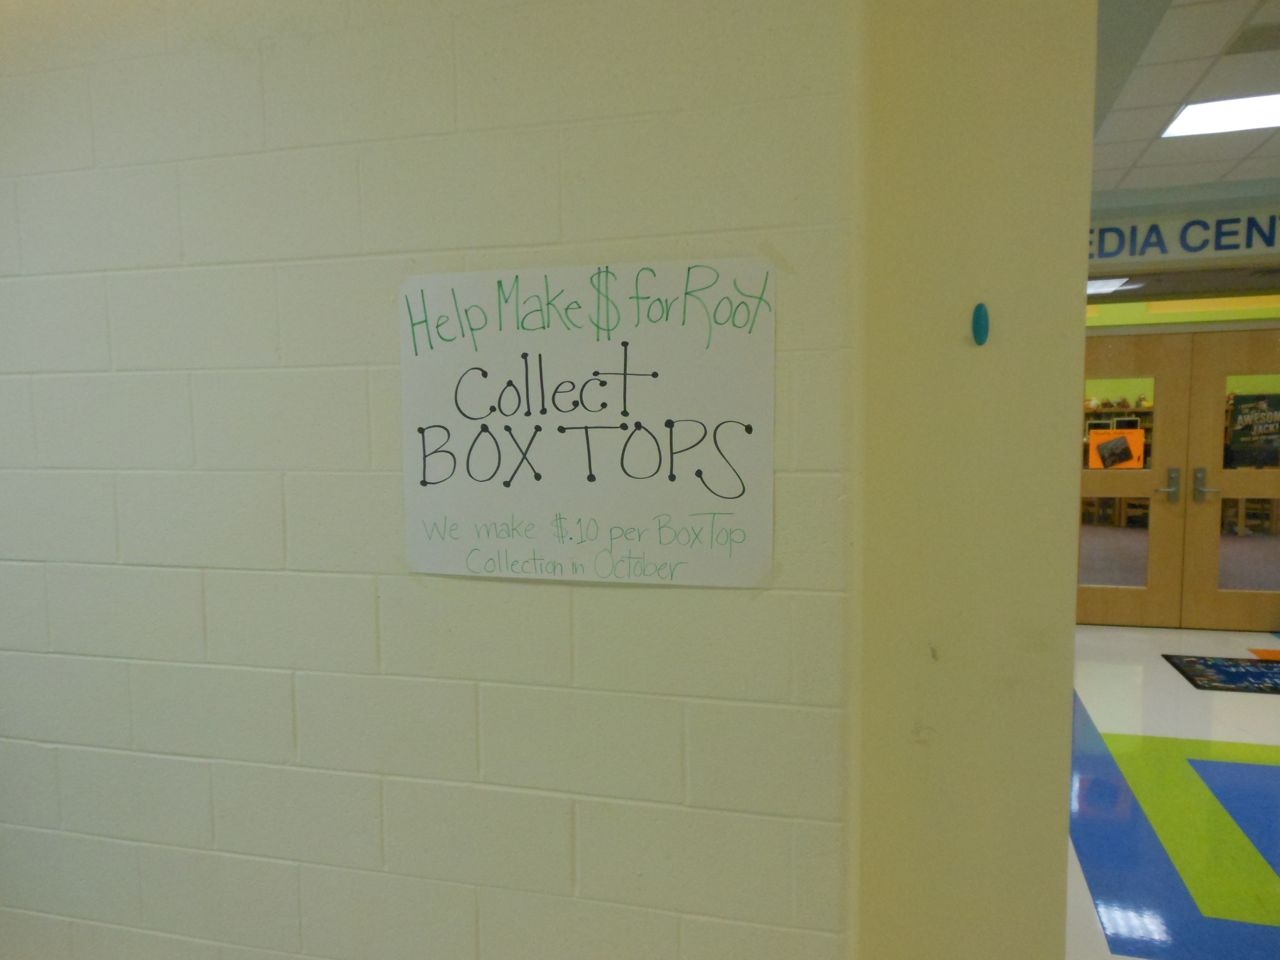 Help Make $ for Root
Collect
BOX TOPS
We make $.10 per Box Top
Collection in October
EDIA CEN
AWESOME
JACK!